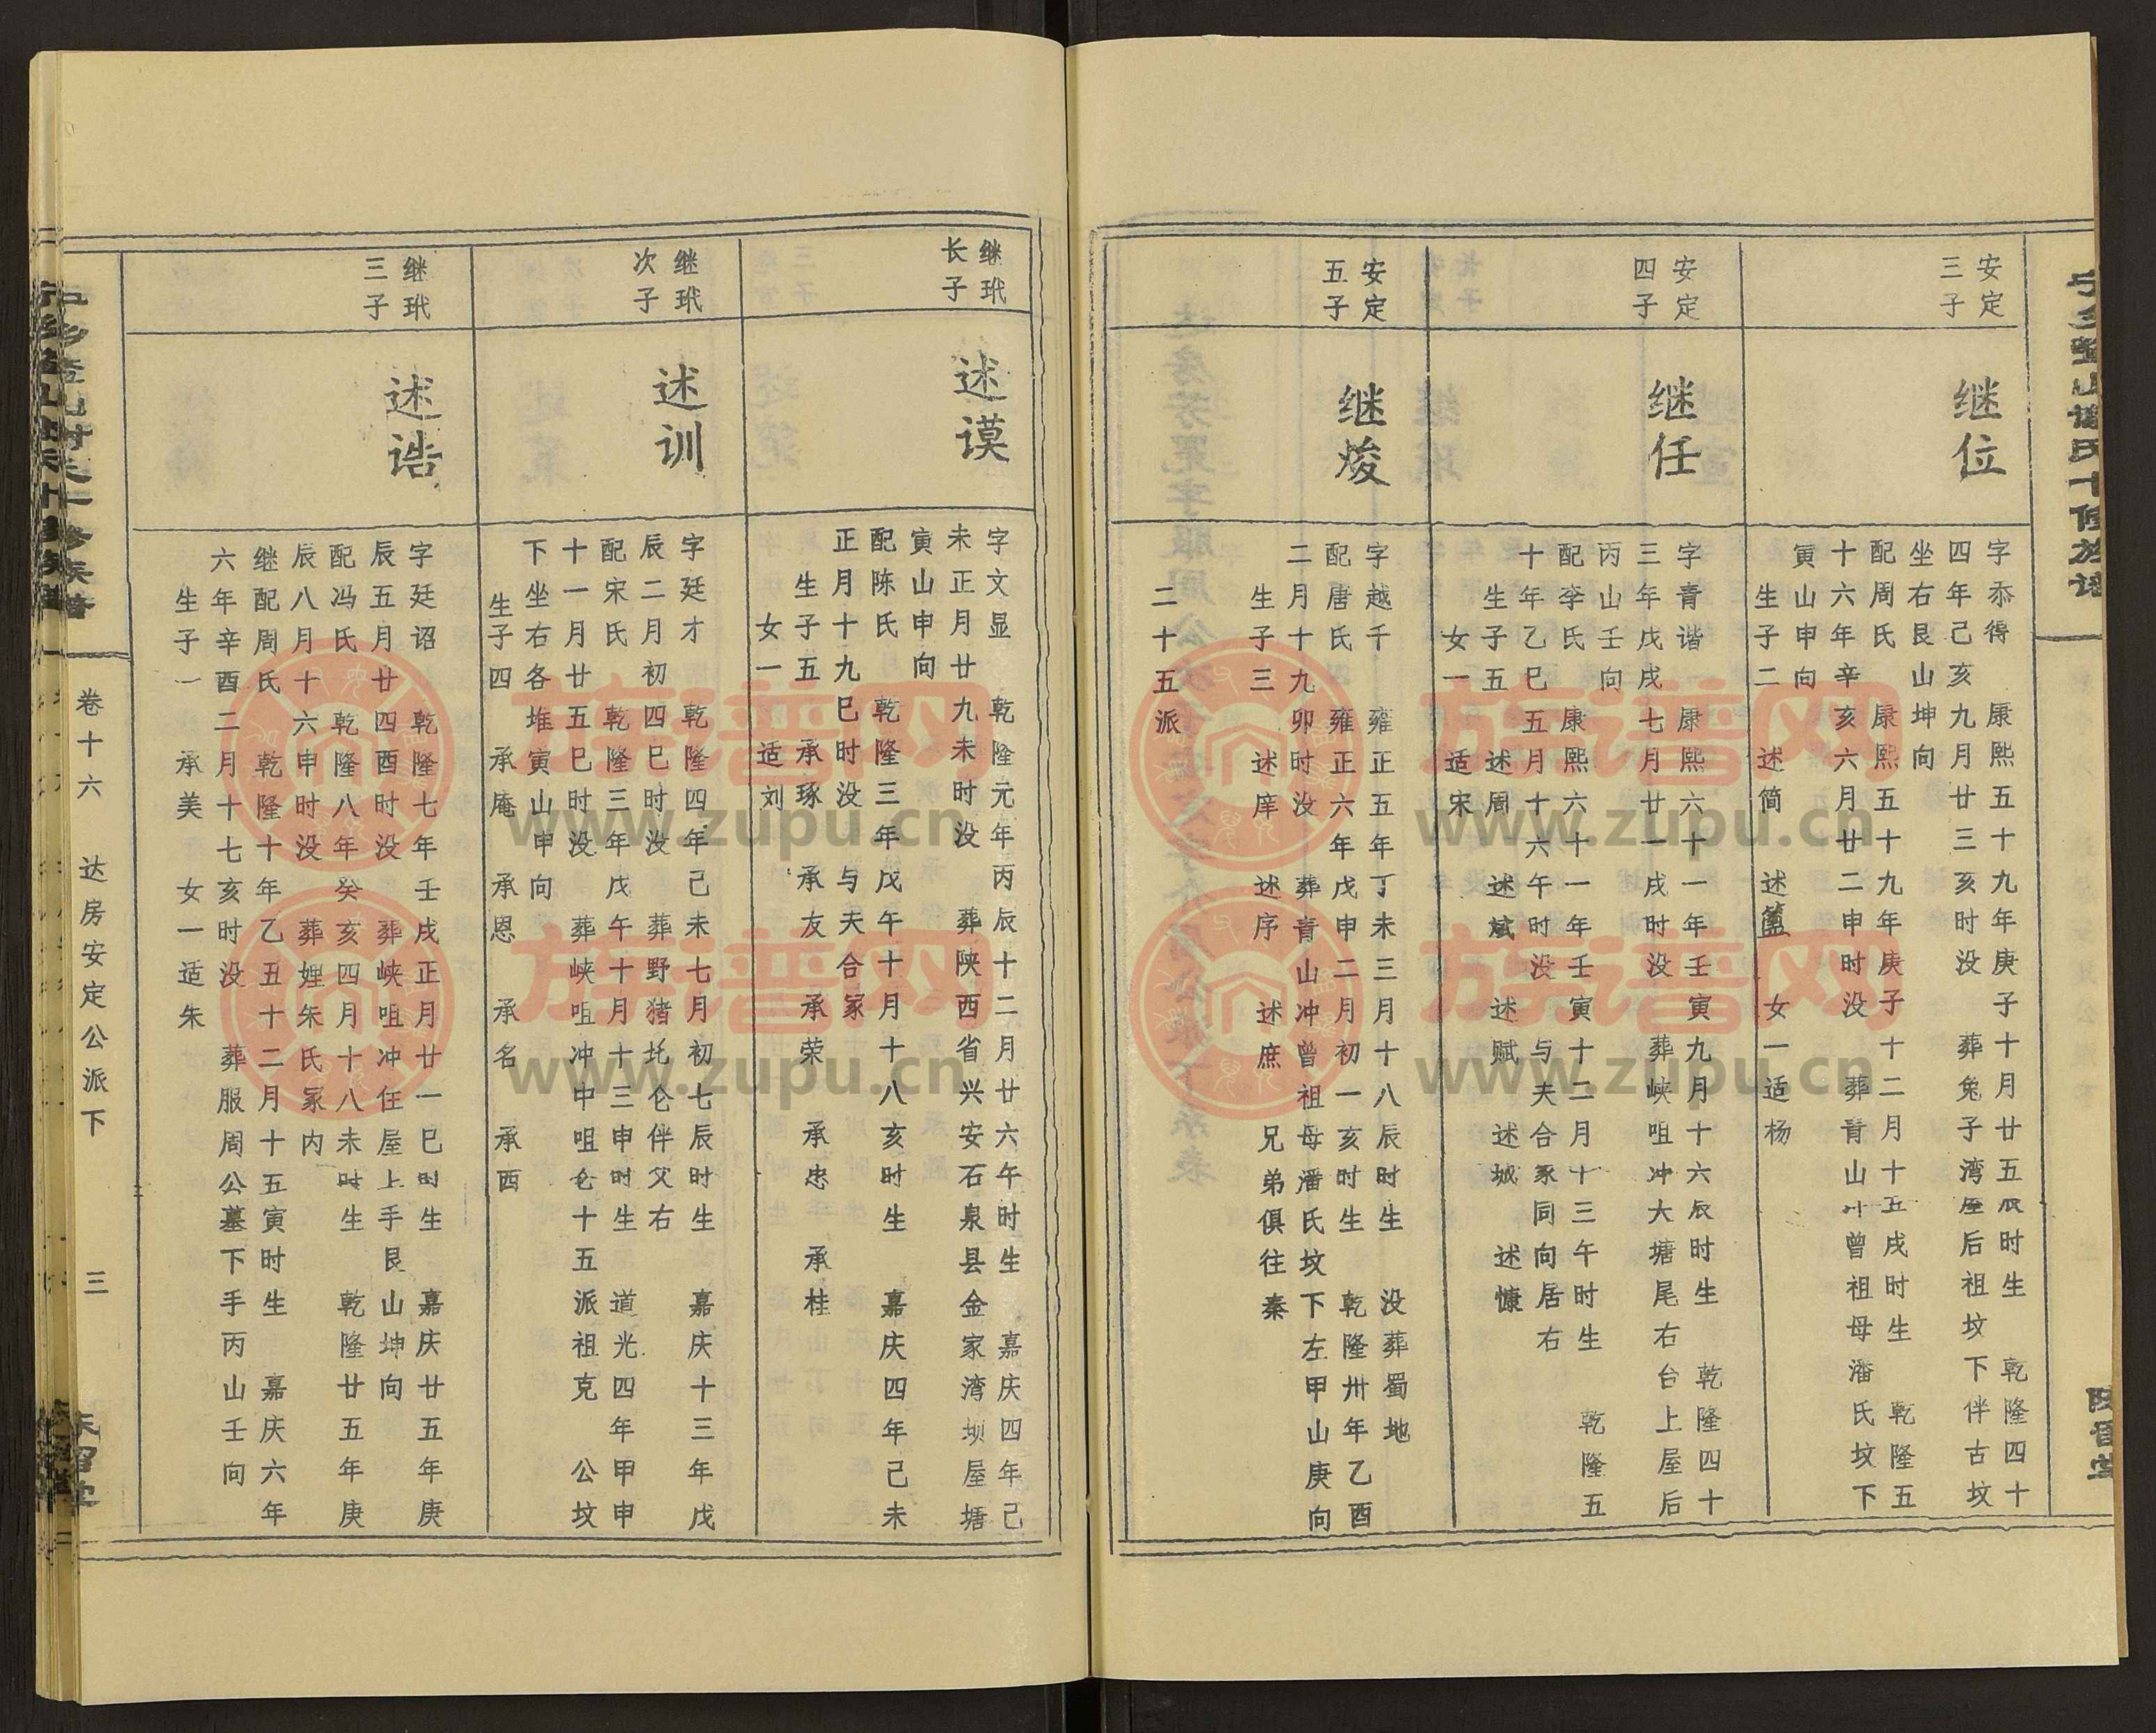 安定
三子
继位
字忝得　康熙五十九年庚子十月廿五辰时生　乾隆四十
四年己亥九月廿三亥时没　葬兔子湾屋后祖坟下伴古坟
坐右艮山坤向
配周氏　康熙五十九年庚子十二月十五戌时生　乾隆五
十六年辛亥六月廿二申时没　葬青山冲曾祖母潘氏坟下
寅山申向
生子二　述简　述簠　女一适杨
安定
四子
继任
字青谐　康熙六十一年壬寅九月十六辰时生　乾隆四十
三年戊戌七月廿一戌时没　葬峡咀冲大塘尾右台上屋后
丙山壬向
配李氏　康熙六十一年壬寅十二月十三午时生　乾隆五
十年乙巳五月十六午时没　与夫合冢同向居右
生子五　述周　述斌　述赋　述城　述慷
女一　适宋
安定
五子
继焌
字越千　雍正五年丁未三月十八辰时生　没葬蜀地
配唐氏　雍正六年戊申二月初一亥时生　乾隆卅年乙酉
二月十九卯时没　葬青山冲曾祖母潘氏坟下左甲山庚向
生子三　述庠　述序　述庶　兄弟俱往秦
二十五派
继玳
长子
述谟
字文显　乾隆元年丙辰十二月廿六午时生　嘉庆四年己
未正月廿九未时没　葬陕西省兴安石泉县金家湾坝屋塘
寅山申向
配陈氏　乾隆三年戊午十月十八亥时生　嘉庆四年己未
正月十九巳时没　与夫合冢
生子五　承琢　承友　承荣　承忠　承桂
女一　适刘
继玳
次子
述训
字廷才　乾隆四年己未七月初七辰时生　嘉庆十三年戊
辰二月初四巳时没　葬野猪托仑伴父右
配宋氏　乾隆三年戊午十月十三申时生　道光四年甲申
十一月廿五巳时没　葬峡咀冲中咀仑十五派祖克　公坟
下坐右各堆寅山申向
生子四　承庵　承恩　承名　承西
继玳
三子
述诰
字廷诏　乾隆七年壬戌正月廿一巳时生　嘉庆廿五年庚
辰五月廿四酉时没　葬峡咀冲住屋上手艮山坤向
配冯氏　乾隆八年癸亥四月十八未时生　乾隆廿五年庚
辰八月十六申时没　葬娌朱氏冢内
继配周氏　乾隆十年乙丑十二月十五寅时生　嘉庆六年
六年辛酉二月十七亥时没　葬服周公墓下手丙山壬向
生子一　承美　女一适朱
卷十六　达房安定公派下　三
族谱网
www.zupu.cn
族谱网
www.zupu.cn
族谱网
www.zupu.cn
族谱网
www.zupu.cn